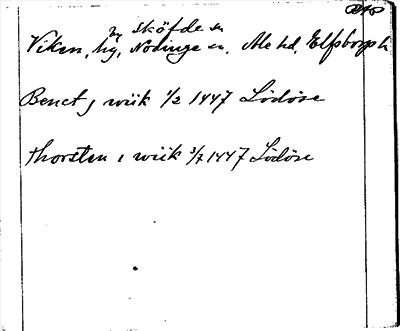 ny sköfde sn
Viken, hg, Nödinge sn, Ale hd, Elfsborgs l.
Benct j wiik 1/2 1447 Lödöse
Thorsten i wiik 3/7 1447 Lödöse